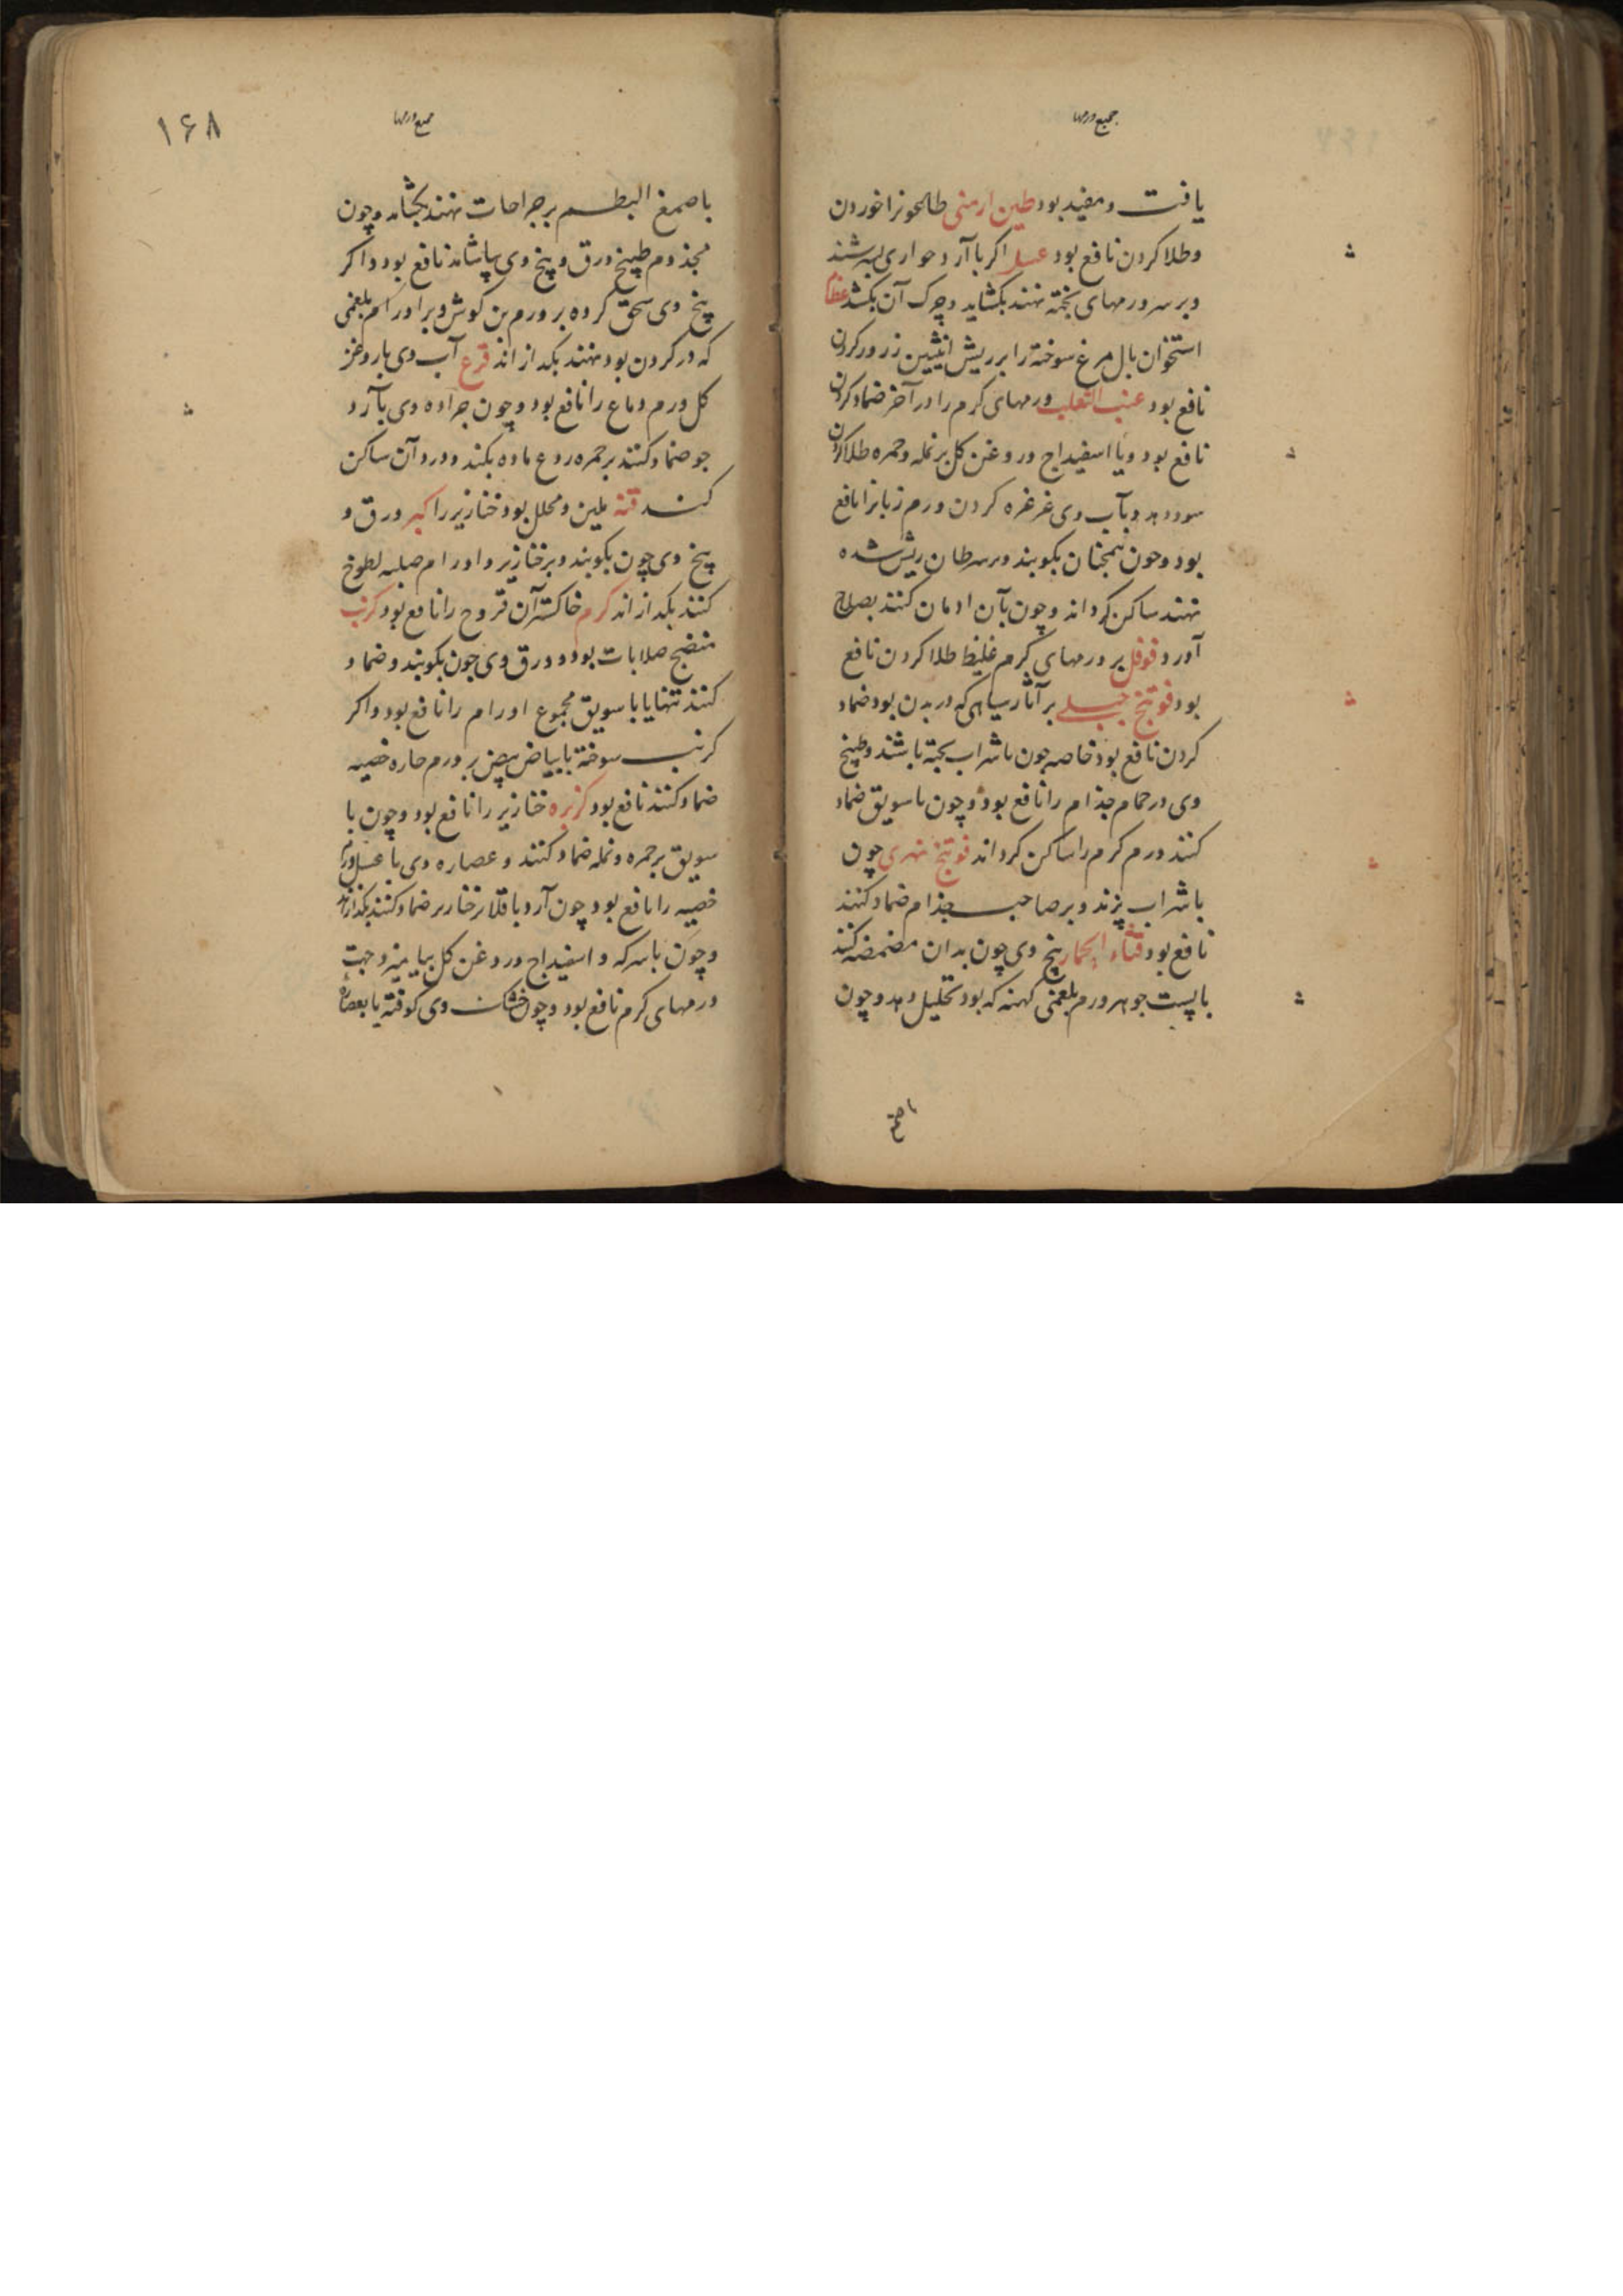 جمیع ورمها
یافت و مفید بود طین ارمنی طاعونرا خوردن
و طلا کردن نافع بود عسل اکر با آرد حواری بسرشند
و بر سر ورمهای پخته نهند بکشاید و چرک آن بکشد عظام
استخوان بال مرغ سوخته را بر ریش انثیین زرور کردن
نافع بود عنب الثعلب ورمهای کرم را در آخر ضماد کردن
نافع بود و با اسفیداج و روغن کل بر نمله و حمره طلا کردن
سود دهد و بآب وی غرغره کردن ورم زبانرا نافع
بود و چون همچنان بکوبند و بر سرطان ریش شده
نهند ساکن کرداند و چون بآن ادمان کنند بصلاح
آورد فوفل بر ورمهای کرم غلیظ طلا کردن نافع
بود فوتنج جبلی بر آثار سیاهی که در بدن بود ضماد
کردن نافع بود خاصه چون با شراب پخته باشند و طبیخ
وی در حمام جذام را نافع بود و چون با سویق ضماد
کنند ورم کرم را ساکن کرداند فوتنج نهری چون
با شراب پزند و بر صاحب جذام ضماد کنند
نافع بود قثاء الحمار بیخ وی چون بدان مضمضه کنند
با پست جو هر ورم بلغمی کهنه که بود تحلیل دهد و چون
با صمغ
جمیع ورمها
۱۶۸
با صمغ البطم بر جراحات نهند بکشاید و چون
مجذوم طبیخ ورق و بیخ وی بیاشامد نافع بود و اکر
بیخ وی سحق کرده بر ورم بن کوش و بر اورام بلغمی
که در کردن بود نهند بکدازاند قرع آب وی با روغن
کل ورم دماغ را نافع بود و چون جراده وی با آرد
جو ضماد کنند بر حمره ردع ماده بکند و درد آن ساکن
کند قنه ملین و محلل بود خنازیر را کبر ورق و
بیخ وی چون بکوبند و بر خنازیر و اورام صلبه لطوخ
کنند بکدازاند کرم خاکستر آن قروح را نافع بود کرنب
منضج صلابات بود و ورق وی چون بکوبند و ضماد
کنند تنها یا با سویق مجموع اورام را نافع بود و اکر
کرنب سوخته با بیاض بیض بر ورم حاره خصیه
ضماد کنند نافع بود کزبره خنازیر را نافع بود و چون با
سویق بر حمره و نمله ضماد کنند و عصاره وی با عسل ورم
خصیه را نافع بود چون آرد باقلا بر خنازیر ضماد کنند بکدازاند
و چون با سرکه و اسفیداج و روغن کل بیامیزند جهت
ورمهای کرم نافع بود و چون خشک وی کوفته با بعصاره